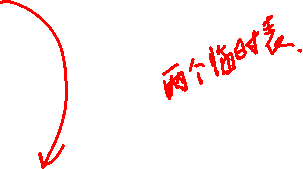 两个临时表.